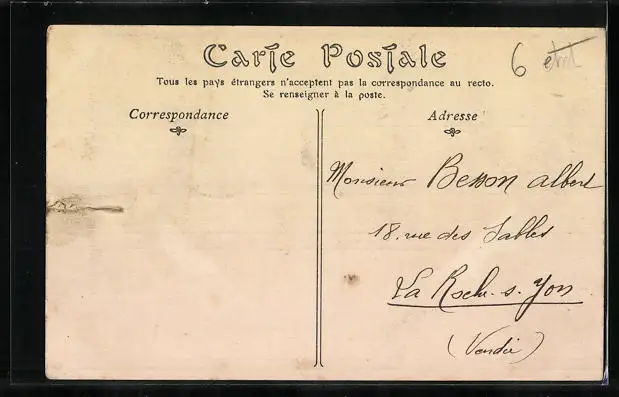 Carte Postale
6
Tous les pays étrangers n'acceptent pas la correspondance au recto.
Se renseigner à la poste.
Correspondance
Adresse
Monsieur Besson Albert
18, rue des Sables
La Roche-s-Yon
(Vendée)